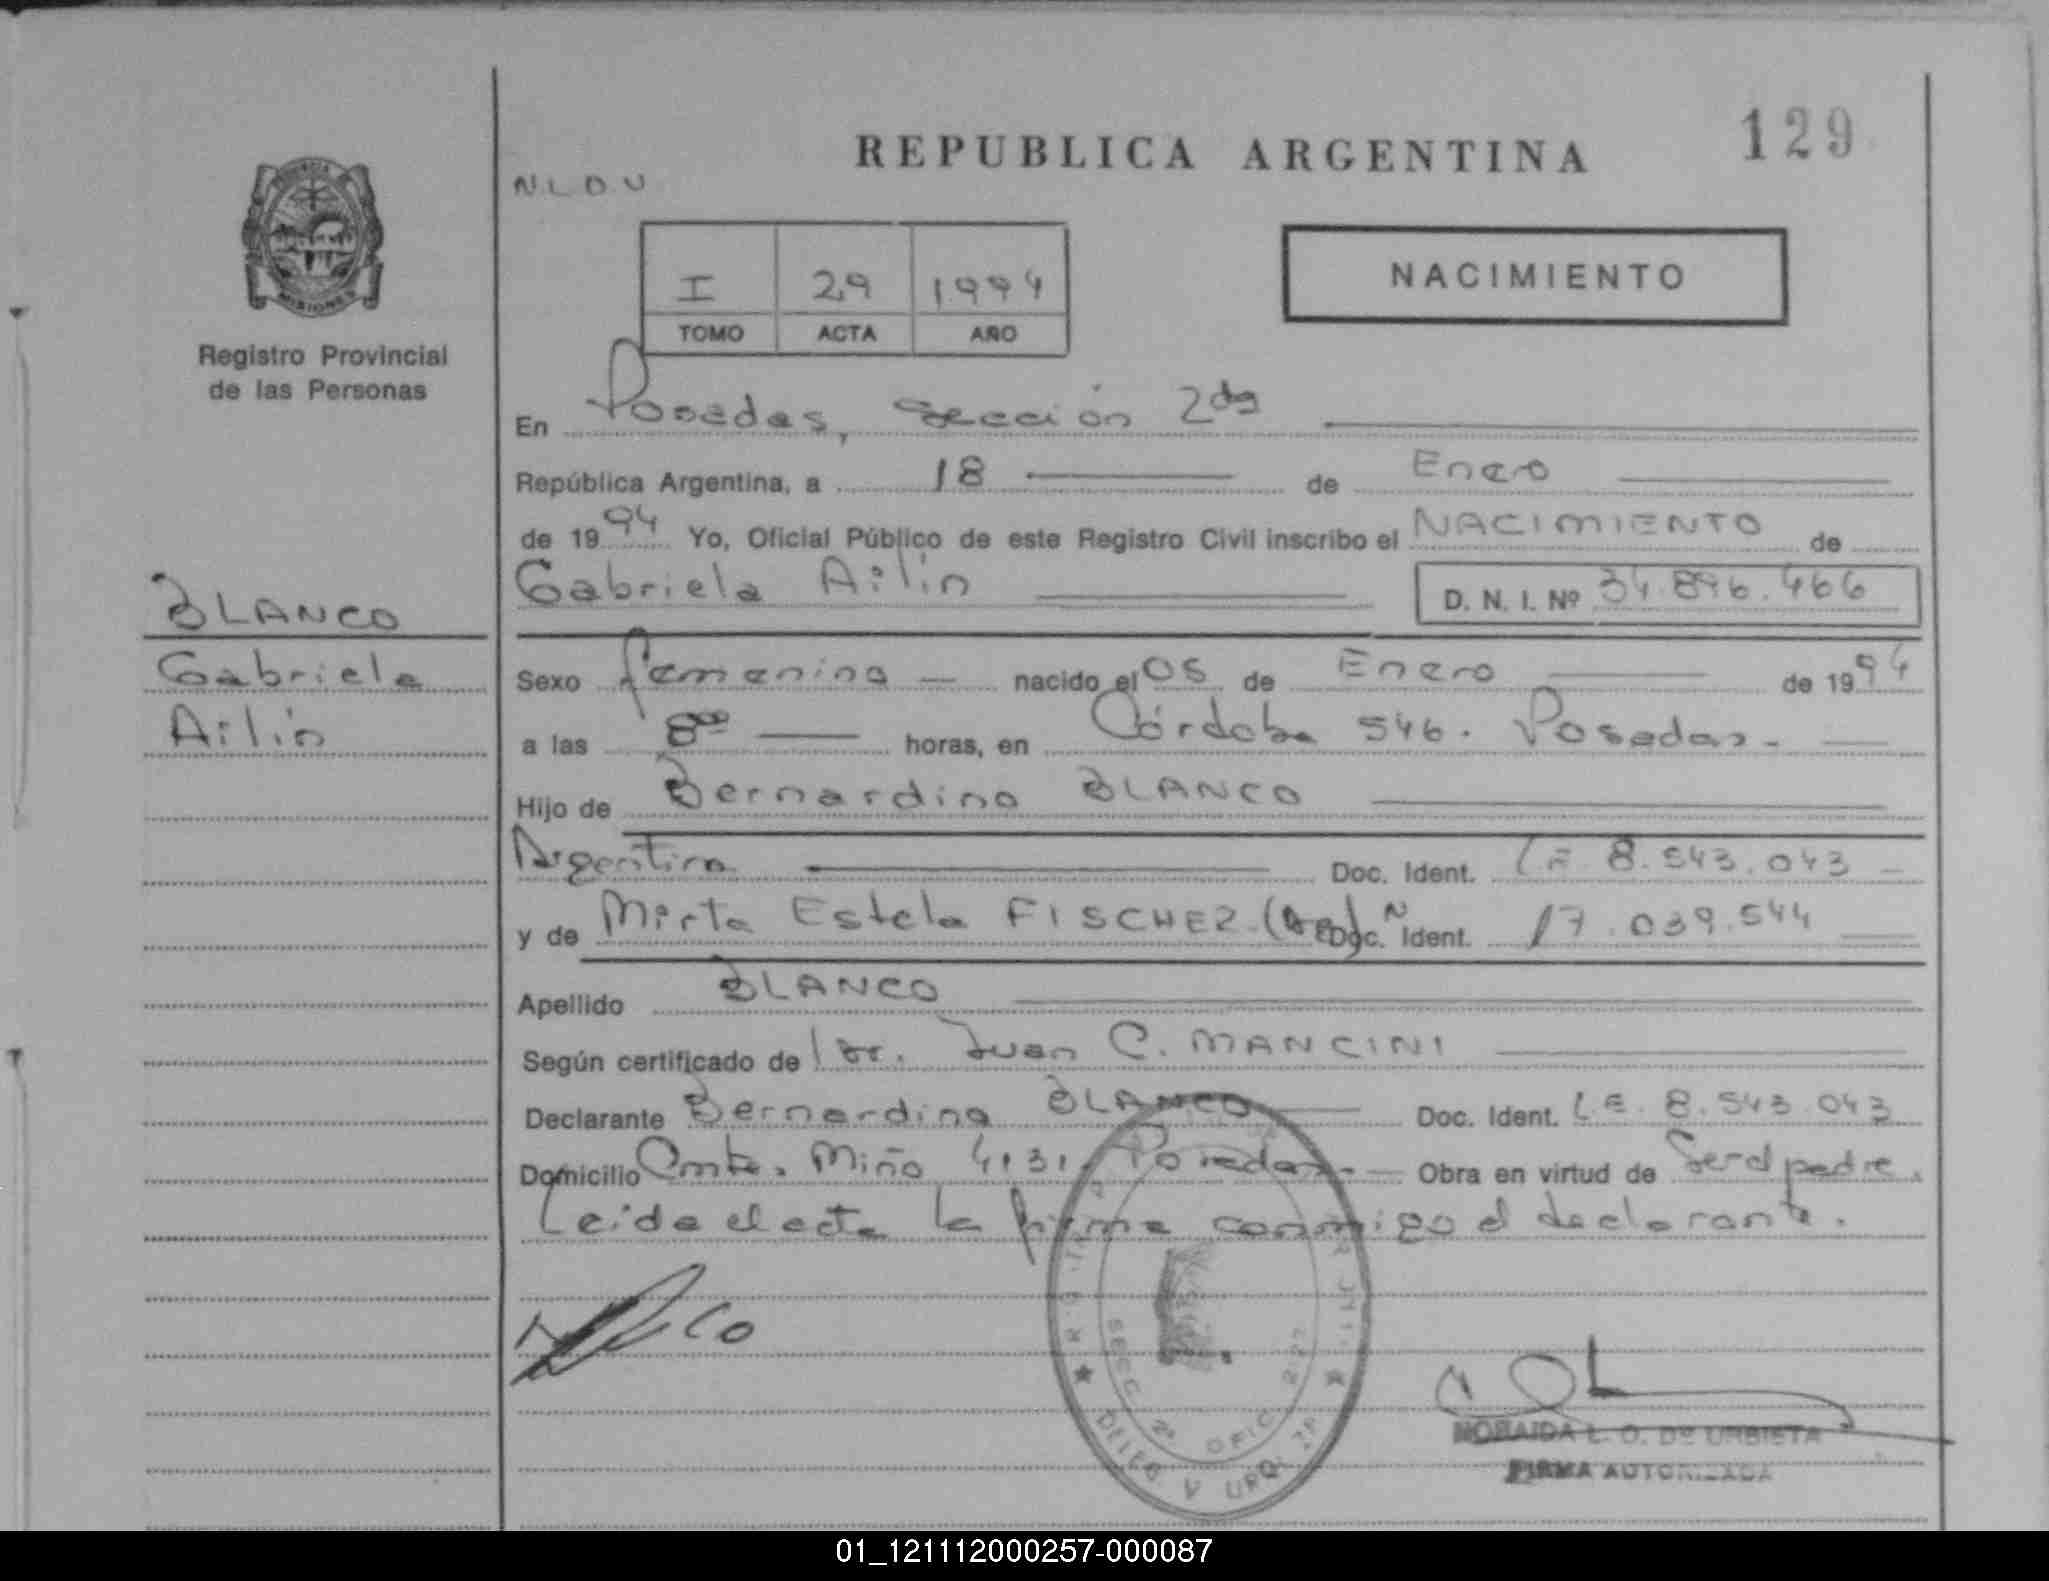 REPUBLICA ARGENTINA
129
N L D U
MISIONES
Registro Provincial
de las Personas
I 29 1994
TOMO ACTA AÑO
NACIMIENTO
En Posadas, Sección 2da
República Argentina, a 18 de Enero
de 1994 Yo, Oficial Público de este Registro Civil inscribo el NACIMIENTO de
Gabriela Ailín D. N. I. Nº 34.896.466
BLANCO
Gabriela
Ailín
Sexo femenino nacido el 05 de Enero de 1994
a las 8⁰⁰ horas, en Córdoba 546. Posadas.-
Hijo de Bernardino BLANCO
Argentina Doc. Ident. LE 8.543.043
y de Mirta Estela FISCHER Doc. Ident. 17.039.544
Apellido BLANCO
Según certificado de Dr. Juan C. MANCINI
Declarante Bernardino BLANCO Doc. Ident. L.E. 8.543.043
Domicilio Cmte. Miño 4131. Posadas.- Obra en virtud de Ser el padre.
Leida el acta la firma conmigo el declarante.
SECC 2ª OFIC
NORAIDA L. O. DE URBIETA
FIRMA AUTORIZADA
01_121112000257-000087